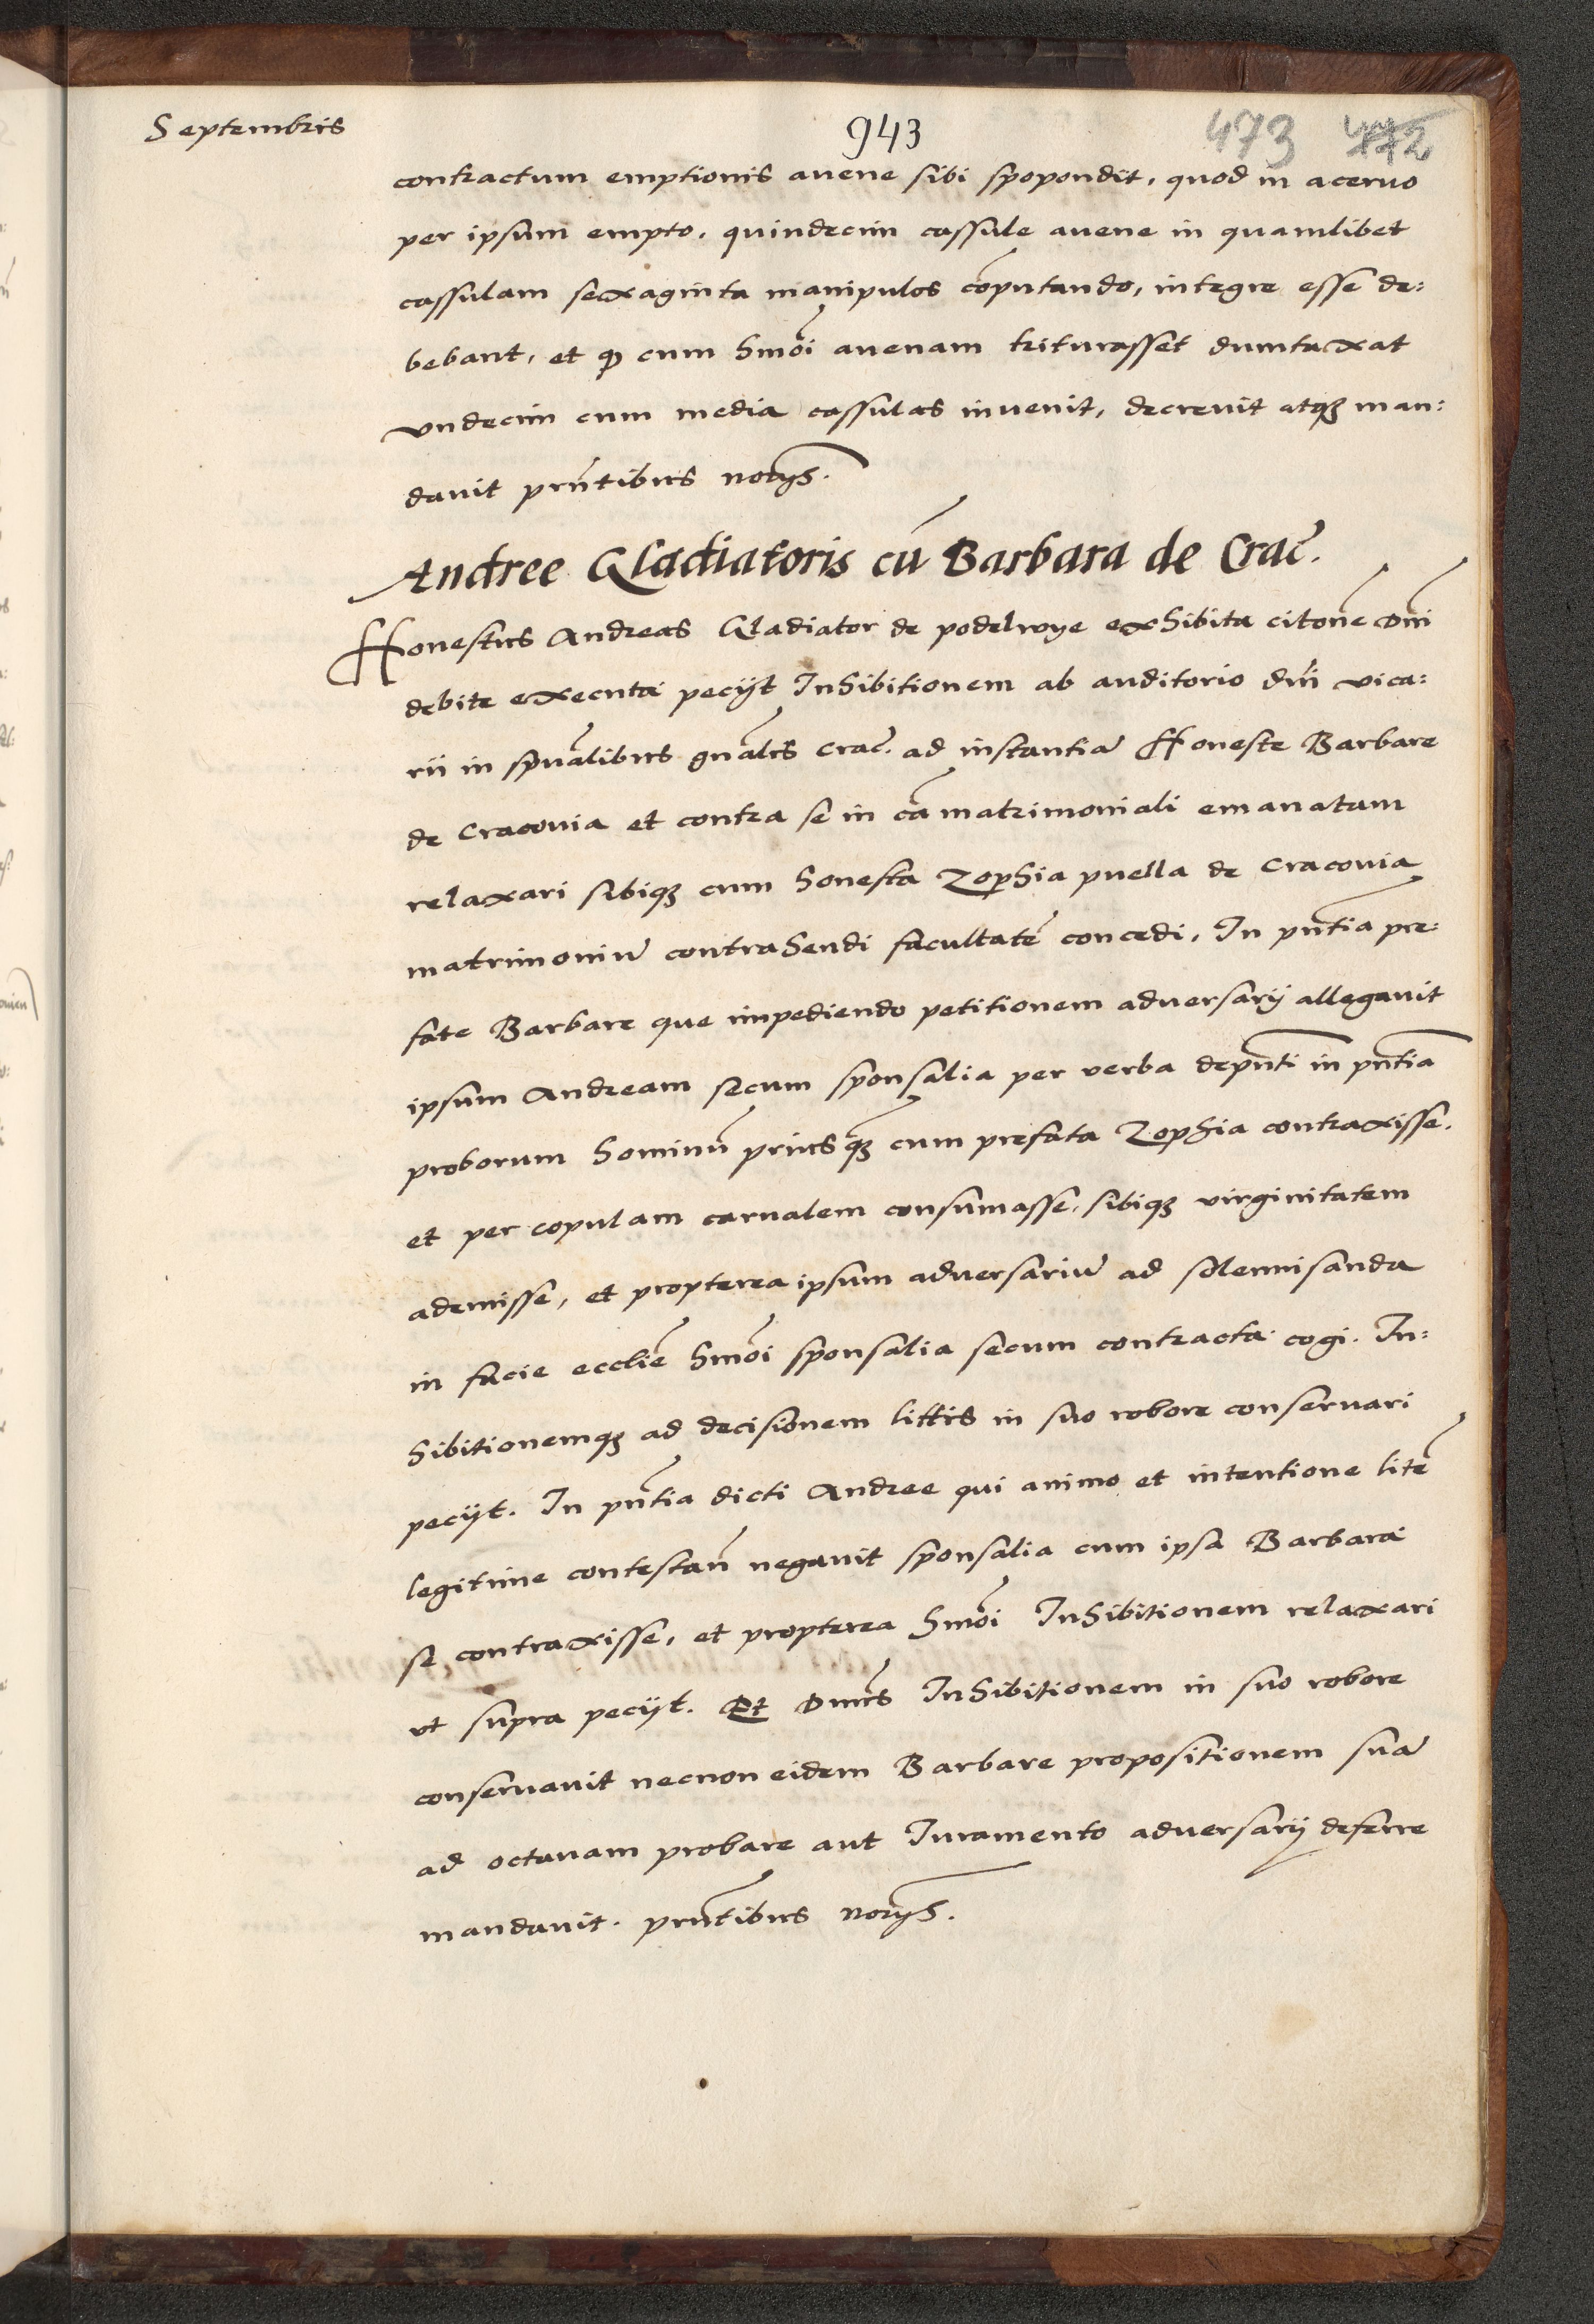 Septembris
943
473 472
contractum emptionis avene sibi spopondit, quod in acervo
per ipsum empto, quindecim cassule avene in quamlibet
cassulam sexaginta manipulos cōputando, integre esse de:
bebant, et ꝙ cum hmōi avenam triturasset dumtaxat
vndecim cum media cassulas invenit, decrevit atqꝫ man:
davit pn̄tibus notijs.
Andree Gladiatoris cū Barbara de Crac̄.
Honestus Andreas Gladiator de podelwye exhibita citōne dn̄i
debite executa pecijt Inhibitionem ab auditorio dn̄i vica:
rii in spūalibus gn̄alis Crac̄. ad instantiā Honeste Barbare
de Cracovia et contra se in cā matrimoniali emanatam
relaxari sibiqꝫ cum honesta Zophia puella de Cracovia
matrimoniū contrahendi facultatē concedi, In pn̄tia pre:
fate Barbare que impediendo petitionem adversarij allegavit
ipsum Andream secum sponsalia per verba depn̄ti in pn̄tia
proborum hominū priusqꝫ cum prefata Zophia contraxisse.
et per copulam carnalem consumasse, sibiqꝫ virginitatem
ademisse, et propterea ipsum adversariū ad solemnisanda
in facie ecclīe hmōi sponsalia secum contracta cogi. In:
hibitionemqꝫ ad decisionem littis in suo robore conservari
pecijt. In pn̄tia dicti Andree qui animo et intentione litē
legitime contestan̄ negavit sponsalia cum ipsa Barbara
se contraxisse, et propterea hmōi Inhibitionem relaxari
vt supra pecijt. Et Dn̄us Inhibitionem in suo robore
conservavit necnon eidem Barbare propositionem suā
ad octavam probare aut Iuramento adversarij deferre
mandavit. pn̄tibus notijs.